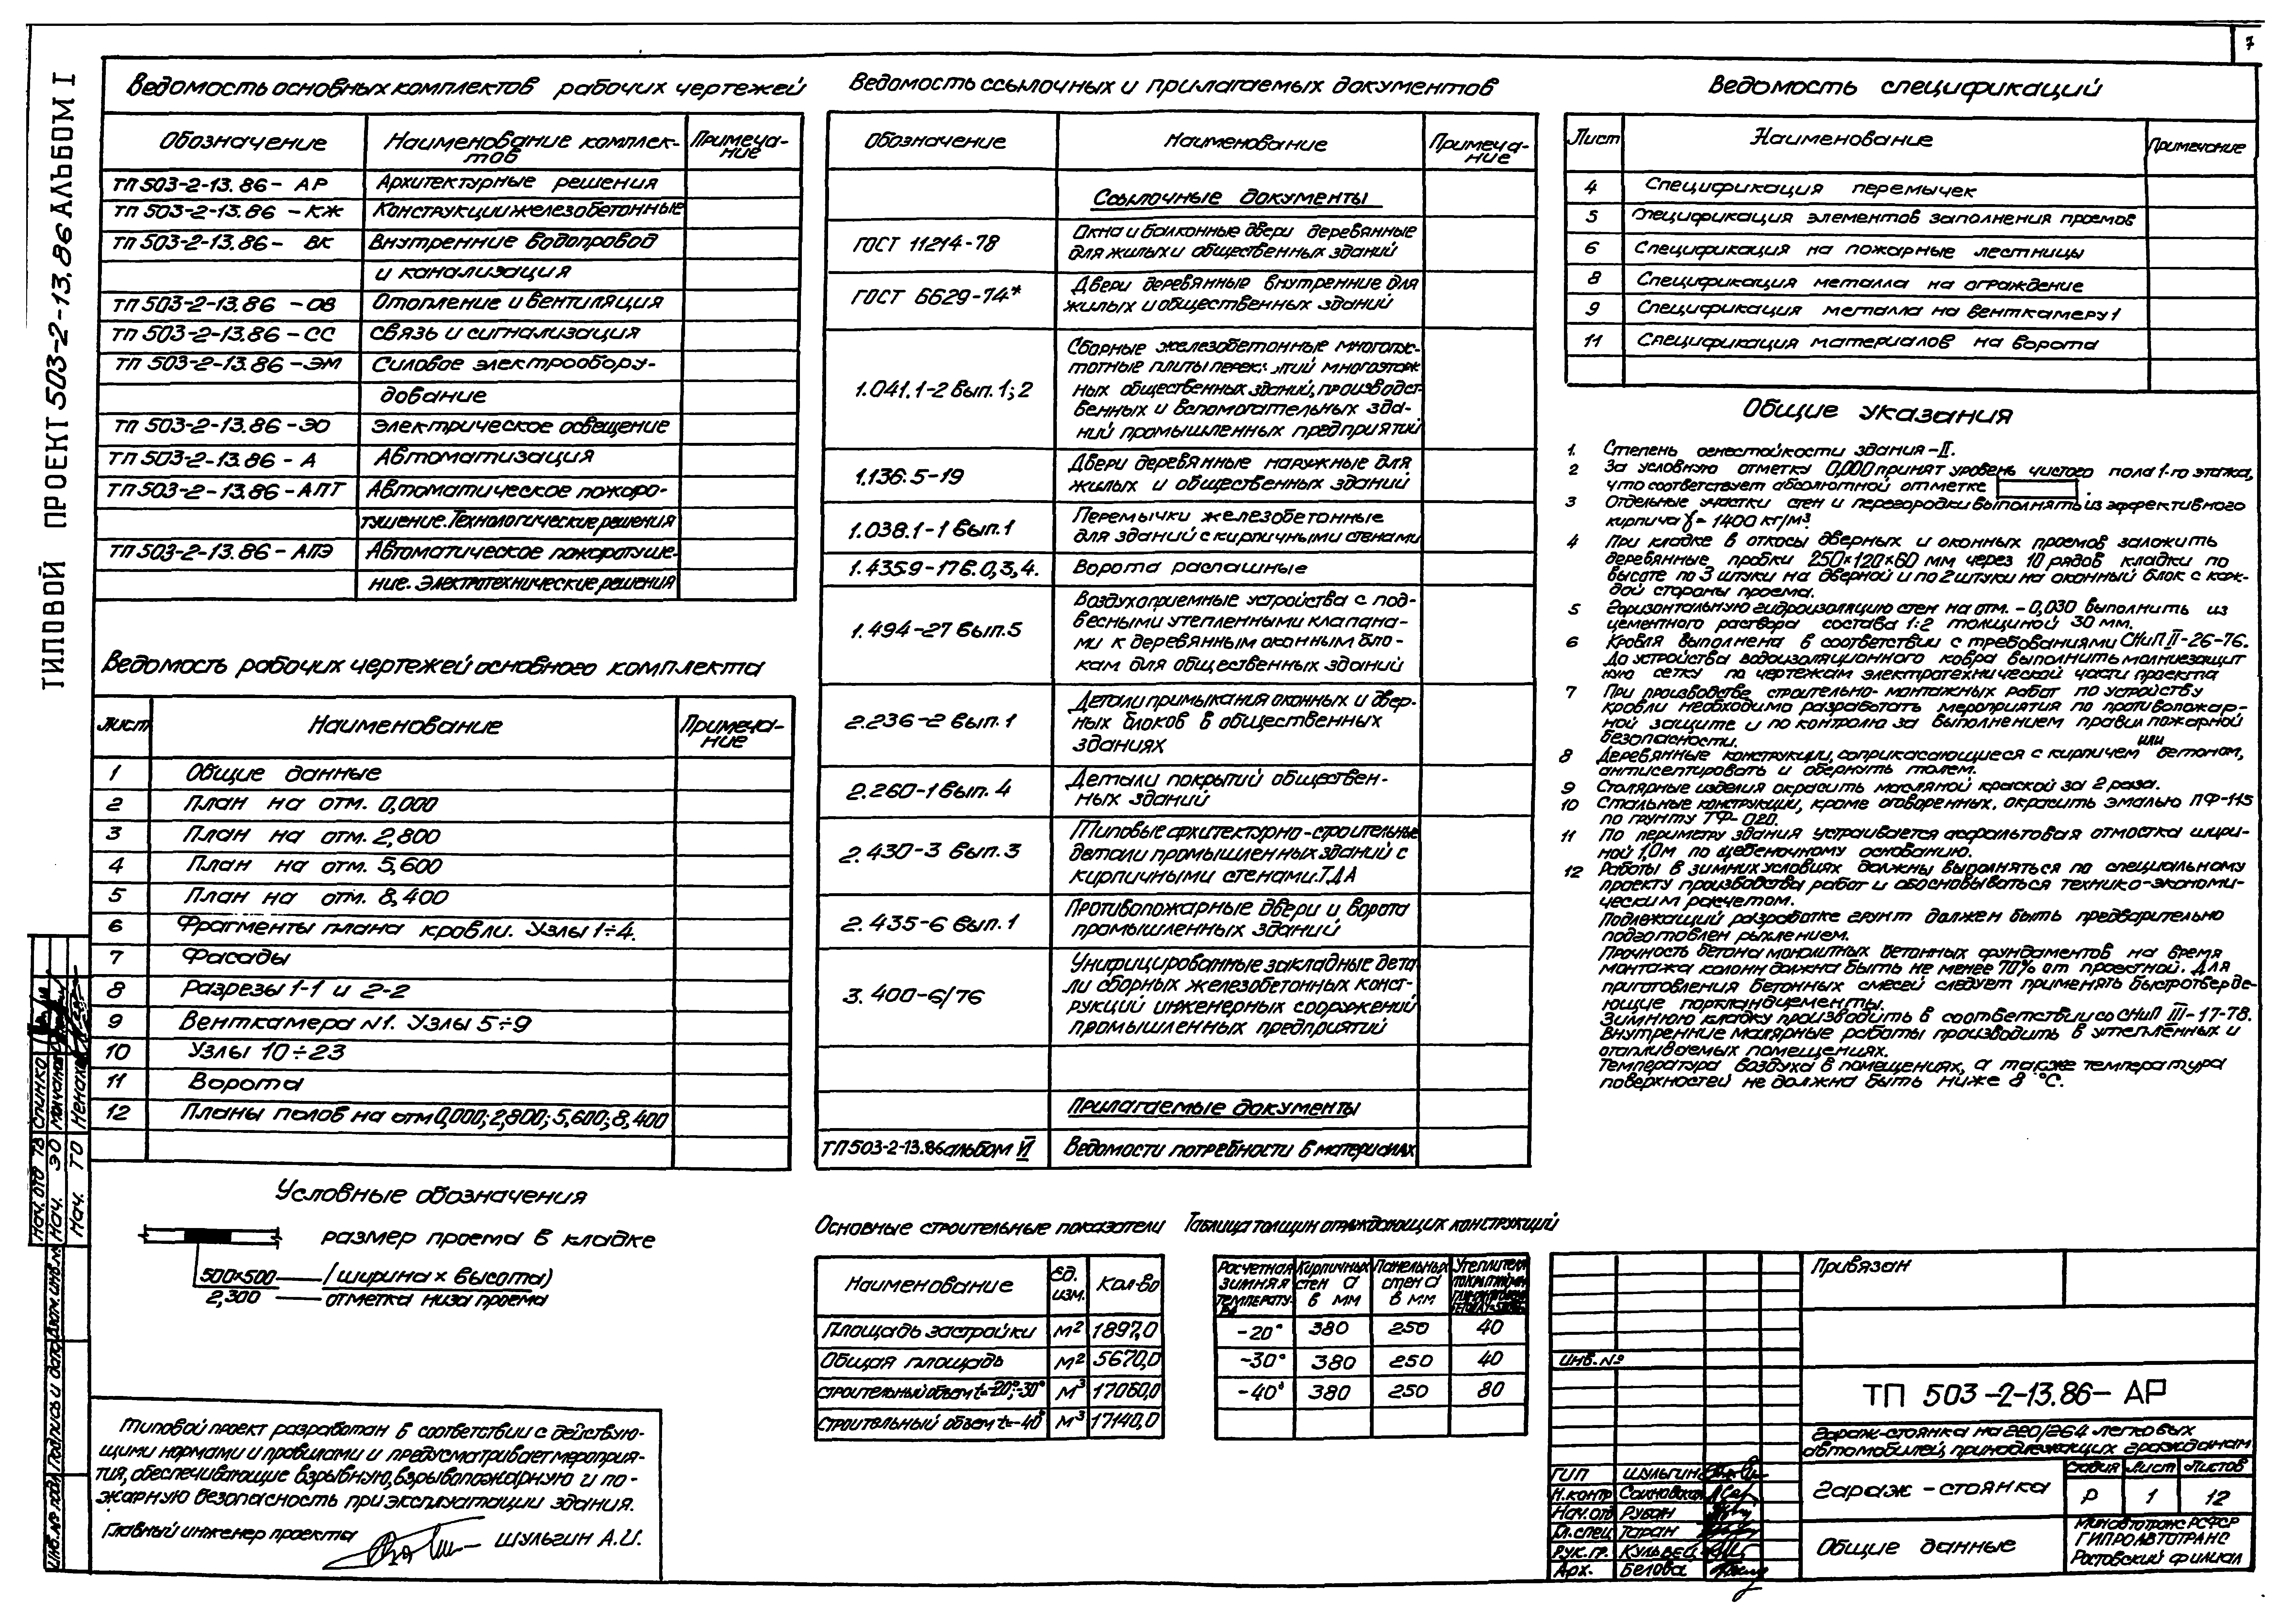 7
ТИПОВОЙ ПРОЕКТ 503-2-13.86 АЛЬБОМ I
Ведомость основных комплектов рабочих чертежей
Обозначение Наименование комплек- Примеча-
тов ние
ТП 503-2-13.86 - АР Архитектурные решения
ТП 503-2-13.86 - КЖ Конструкции железобетонные
ТП 503-2-13.86 - ВК Внутренние водопровод
и канализация
ТП 503-2-13.86 - ОВ Отопление и вентиляция
ТП 503-2-13.86 - СС Связь и сигнализация
ТП 503-2-13.86 - ЭМ Силовое электрообору-
дование
ТП 503-2-13.86 - ЭО Электрическое освещение
ТП 503-2-13.86 - А Автоматизация
ТП 503-2-13.86 - АПТ Автоматическое пожаро-
тушение. Технологические решения
ТП 503-2-13.86 - АПЭ Автоматическое пожаротуше-
ние. Электротехнические решения
Ведомость рабочих чертежей основного комплекта
Лист Наименование Примеча-
ние
1 Общие данные
2 План на отм. 0,000
3 План на отм. 2,800
4 План на отм. 5,600
5 План на отм. 8,400
6 Фрагменты плана кровли. Узлы 1÷4.
7 Фасады
8 Разрезы 1-1 и 2-2
9 Венткамера №1. Узлы 5÷9
10 Узлы 10÷23
11 Ворота
12 Планы полов на отм 0,000; 2,800; 5,600; 8,400
Условные обозначения
размер проема в кладке
500×500 (ширина × высота)
2,300 отметка низа проема
Типовой проект разработан в соответствии с действую-
щими нормами и правилами и предусматривает мероприя-
тия, обеспечивающие взрывную, взрывопожарную и по-
жарную безопасность при эксплуатации здания.
Главный инженер проекта Шульгин А.И.
Ведомость ссылочных и прилагаемых документов
Обозначение Наименование Примеча-
ние
Ссылочные документы
ГОСТ 11214-78 Окна и балконные двери деревянные
для жилых и общественных зданий
ГОСТ 6629-74* Двери деревянные внутренние для
жилых и общественных зданий
1.041.1-2 вып. 1; 2 Сборные железобетонные многопус-
тотные плиты перекрытий многоэтаж-
ных общественных зданий, производст-
венных и вспомогательных зда-
ний промышленных предприятий
1.136.5-19 Двери деревянные наружные для
жилых и общественных зданий
1.038.1-1 вып.1 Перемычки железобетонные
для зданий с кирпичными стенами
1.435.9-17 в. 0,3,4. Ворота распашные
1.494-27 вып.5 Воздухоприемные устройства с под-
весными утепленными клапана-
ми к деревянным оконным бло-
кам для общественных зданий
2.236-2 вып.1 Детали примыкания оконных и двер-
ных блоков в общественных
зданиях
2.260-1 вып. 4 Детали покрытий обществен-
ных зданий
2.430-3 вып.3 Типовые архитектурно-строительные
детали промышленных зданий с
кирпичными стенами. ТДА
2.435-6 вып.1 Противопожарные двери и ворота
промышленных зданий
3.400-6/76 Унифицированные закладные дета-
ли сборных железобетонных конст-
рукций инженерных сооружений
промышленных предприятий
Прилагаемые документы
ТП 503-2-13.86 альбом VI Ведомости потребности в материалах
Основные строительные показатели
Наименование Ед. изм. Кол-во
Площадь застройки м² 1897,0
Общая площадь м² 5670,0
Строительный объем t=-20°;-30° м³ 17060,0
Строительный объем t=-40° м³ 17140,0
Таблица толщин ограждающих конструкций
Расчетная Кирпичных Панельных Утеплителя
зимняя стен а стен а
температу- в мм в мм
ра
-20° 380 250 40
-30° 380 250 40
-40° 380 250 80
Ведомость спецификаций
Лист Наименование Примечание
4 Спецификация перемычек
5 Спецификация элементов заполнения проемов
6 Спецификация на пожарные лестницы
8 Спецификация металла на ограждение
9 Спецификация металла на венткамеру 1
11 Спецификация материалов на ворота
Общие указания
1. Степень огнестойкости здания - II.
2 За условную отметку 0,000 принят уровень чистого пола 1-го этажа,
что соответствует абсолютной отметке .
3 Отдельные участки стен и перегородки выполнять из эффективного
кирпича γ = 1400 кг/м³.
4 При кладке в откосы дверных и оконных проемов заложить
деревянные пробки 250×120×60 мм через 10 рядов кладки по
высоте по 3 штуки на дверной и по 2 штуки на оконный блок с каж-
дой стороны проема.
5 Горизонтальную гидроизоляцию стен на отм. - 0,030 выполнить из
цементного раствора состава 1:2 толщиной 30 мм.
6 Кровля выполнена в соответствии с требованиями СНиП II-26-76.
До устройства водоизоляционного ковра выполнить молниезащит
ную сетку по чертежам электротехнической части проекта
7 При производстве строительно-монтажных работ по устройству
кровли необходимо разработать мероприятия по противопожар-
ной защите и по контролю за выполнением правил пожарной
безопасности.
8 Деревянные конструкции, соприкасающиеся с кирпичем или бетоном,
антисептировать и обернуть толем.
9 Столярные изделия окрасить масляной краской за 2 раза.
10 Стальные конструкции, кроме оговоренных, окрасить эмалью ПФ-115
по грунту ГФ-020.
11 По периметру здания устраивается асфальтовая отмостка шири-
ной 1,0м по щебеночному основанию.
12 Работы в зимних условиях должны выполняться по специальному
проекту производства работ и обосновываться технико-экономи-
ческим расчетом.
Подлежащий разработке грунт должен быть предварительно
подготовлен рыхлением.
Прочность бетона монолитных бетонных фундаментов на время
монтажа колонн должна быть не менее 70% от проектной. Для
приготовления бетонных смесей следует применять быстротверде-
ющие портландцементы.
Зимнюю кладку производить в соответствии со СНиП III-17-78.
Внутренние малярные работы производить в утеплённых и
отапливаемых помещениях.
Температура воздуха в помещениях, а также температура
поверхностей не должна быть ниже 8 °С.
Привязан
Инв. №
ТП 503-2-13.86- АР
Гараж-стоянка на 220/264 легковых
автомобилей, принадлежащих гражданам
ГИП Шульгин
Н.контр Сохновская
Нач.отд Рубан
Гл.спец Таран
Рук.гр. Кульвец
Арх. Белова
Гараж-стоянка
Стадия Лист Листов
Р 1 12
Общие данные
Минавтотранс РСФСР
ГИПРОАВТОТРАНС
Ростовский филиал
Нач. отд ТВ Спинко
Нач. ЭО
Нач. ТО
Инв.№ подл. Подпись и дата Взам. инв.№